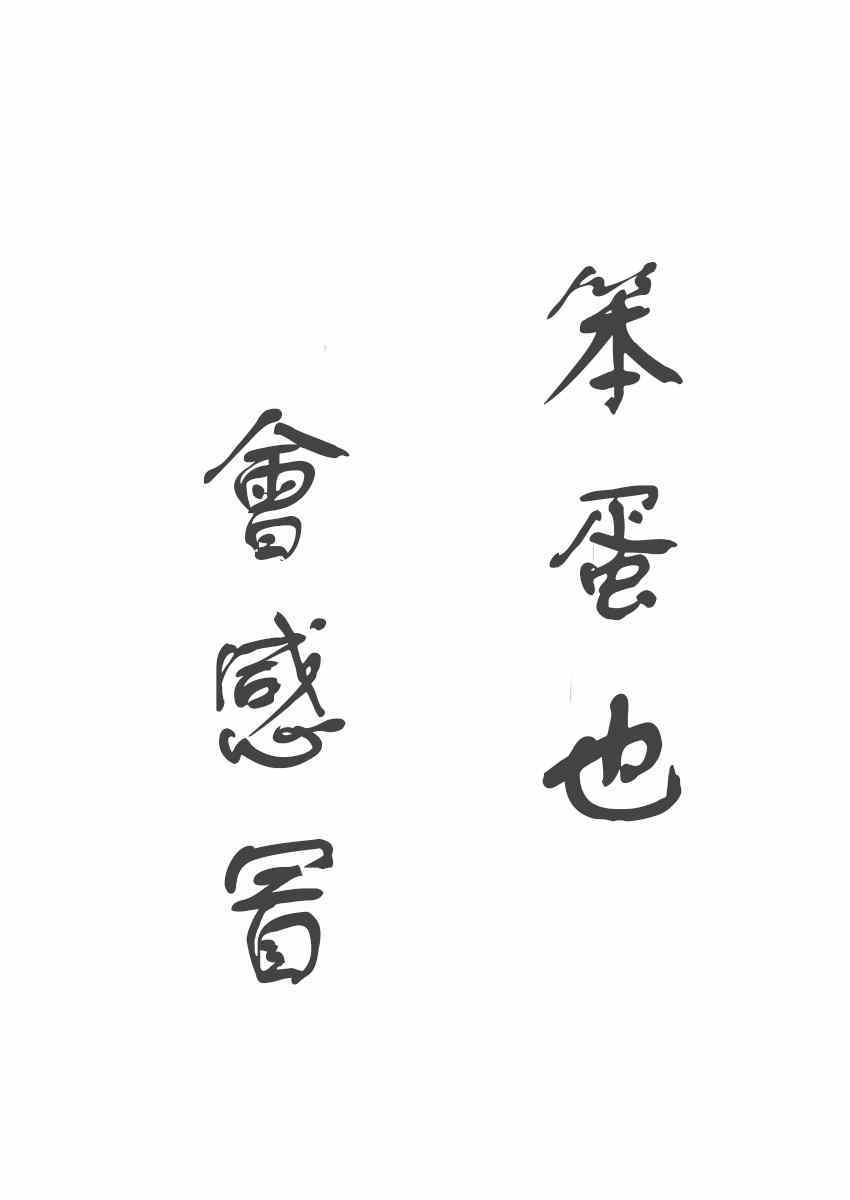 笨蛋也
會感冒